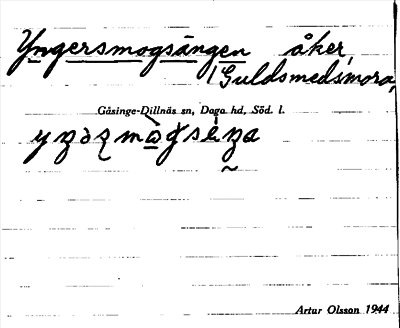 Yngersmogsängen åker,
i Guldsmedsmora,
Gåsinge-Dillnäs sn, Daga hd, Söd. l.
Artur Olsson 1944